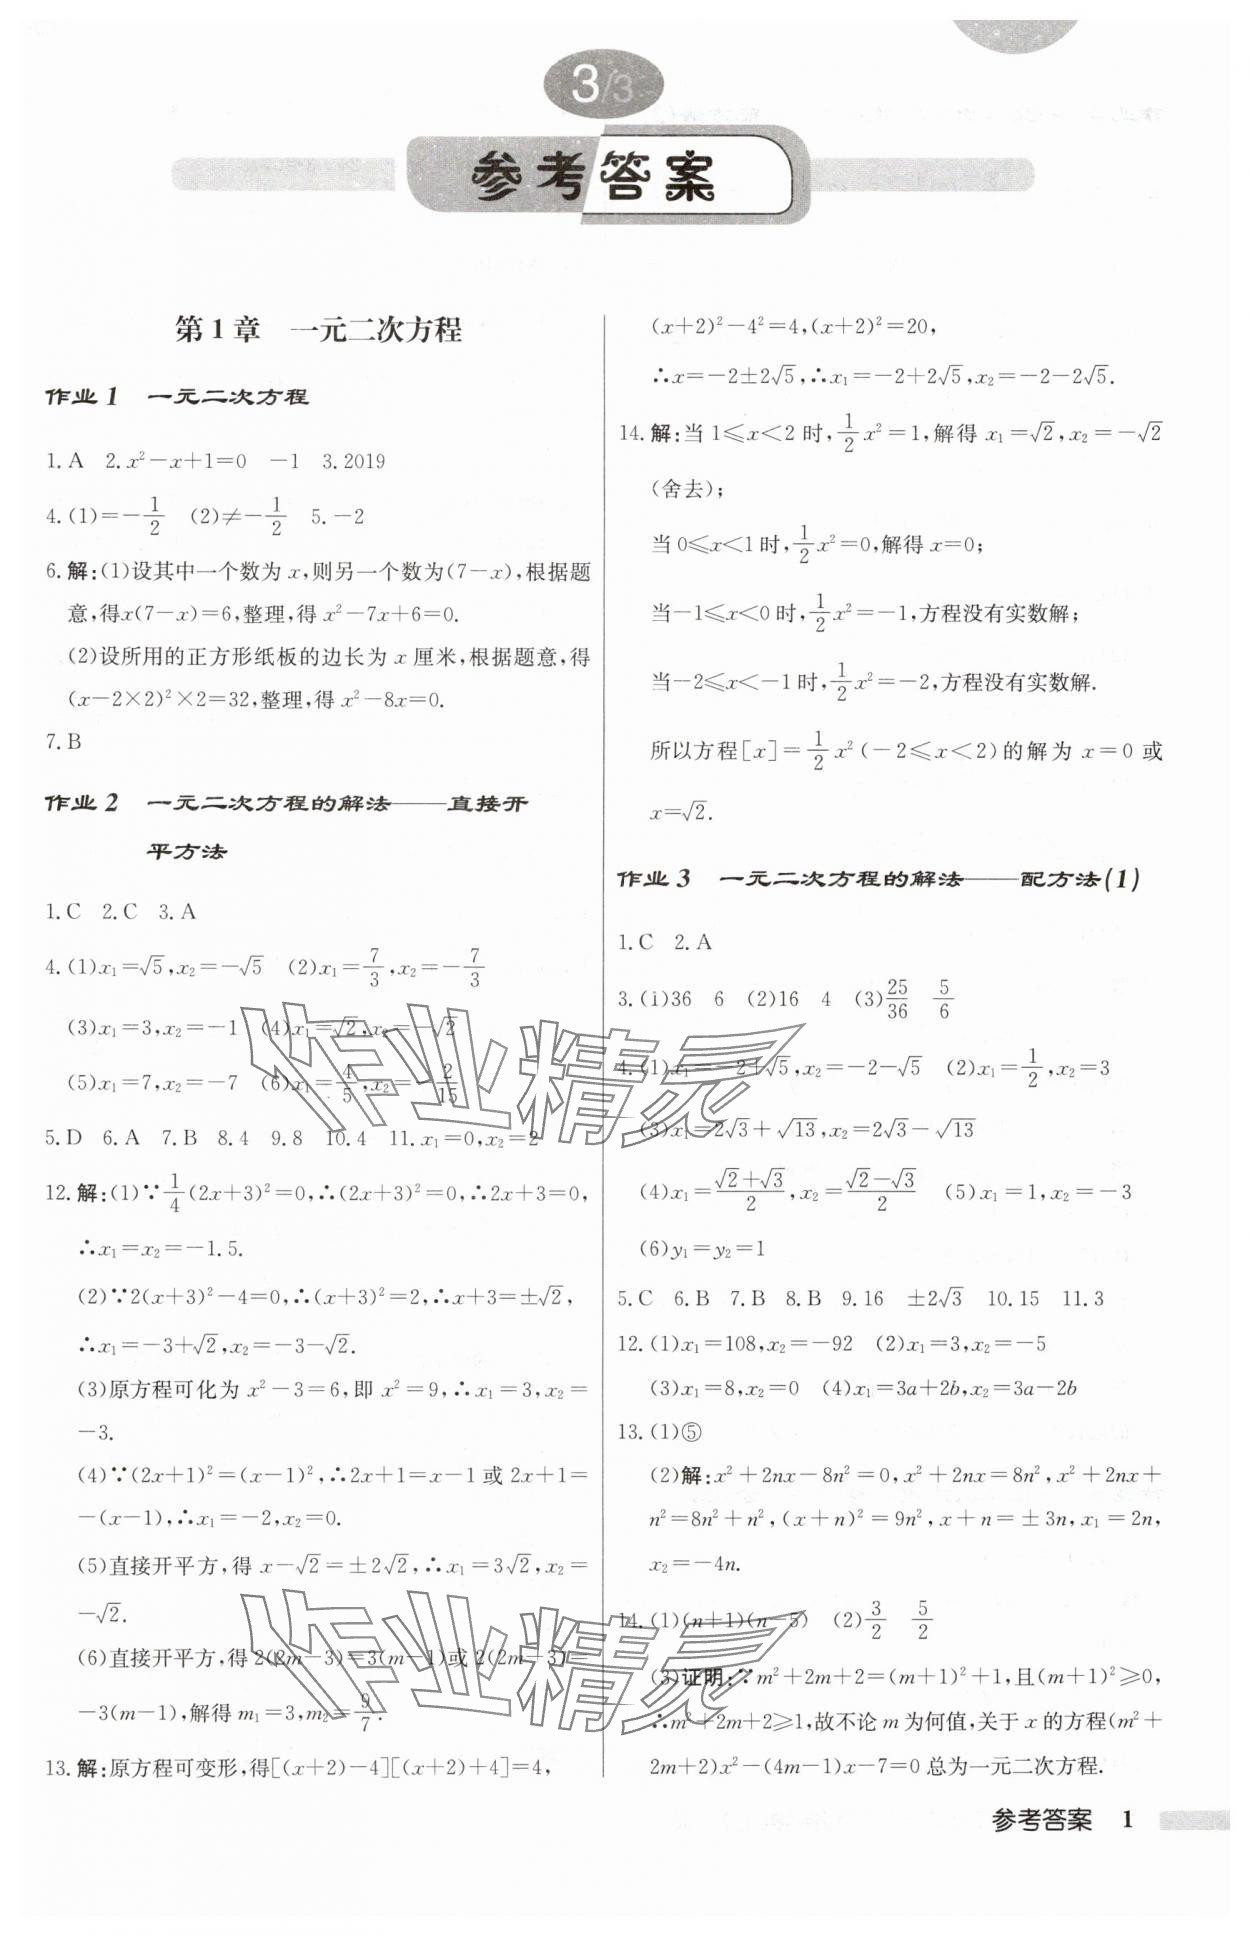 3/3
参考答案
第1章 一元二次方程
作业1 一元二次方程
1. A 2. x²－x＋1＝0 －1 3. 2019
4. (1)＝－1/2 (2)≠－1/2 5. －2
6. 解:(1)设其中一个数为 x,则另一个数为(7－x),根据题
意,得x(7－x)＝6,整理,得 x²－7x＋6＝0.
(2)设所用的正方形纸板的边长为 x 厘米,根据题意,得
(x－2×2)²×2＝32,整理,得 x²－8x＝0.
7. B
作业2 一元二次方程的解法——直接开
平方法
1. C 2. C 3. A
4. (1)x₁＝√5,x₂＝－√5 (2)x₁＝7/3,x₂＝－7/3
(3)x₁＝3,x₂＝－1 (4)x₁＝√2,x₂＝－√2
(5)x₁＝7,x₂＝－7 (6)x₁＝4/5,x₂＝－2/15
5. D 6. A 7. B 8. 4 9. 8 10. 4 11. x₁＝0,x₂＝2
12. 解:(1)∵1/4(2x＋3)²＝0,∴(2x＋3)²＝0,∴2x＋3＝0,
∴x₁＝x₂＝－1.5.
(2)∵2(x＋3)²－4＝0,∴(x＋3)²＝2,∴x＋3＝±√2,
∴x₁＝－3＋√2,x₂＝－3－√2.
(3)原方程可化为 x²－3＝6,即 x²＝9,∴x₁＝3,x₂＝
－3.
(4)∵(2x＋1)²＝(x－1)²,∴2x＋1＝x－1 或 2x＋1＝
－(x－1),∴x₁＝－2,x₂＝0.
(5)直接开平方,得 x－√2＝±2√2,∴x₁＝3√2,x₂＝
－√2.
(6)直接开平方,得 2(2m－3)＝3(m－1)或 2(2m－3)＝
－3(m－1),解得 m₁＝3,m₂＝9/7.
13. 解:原方程可变形,得[(x＋2)－4][(x＋2)＋4]＝4,
(x＋2)²－4²＝4,(x＋2)²＝20,
∴x＝－2±2√5,∴x₁＝－2＋2√5,x₂＝－2－2√5.
14. 解:当 1≤x＜2 时,1/2x²＝1,解得 x₁＝√2,x₂＝－√2
(舍去);
当 0≤x＜1 时,1/2x²＝0,解得 x＝0;
当－1≤x＜0 时,1/2x²＝－1,方程没有实数解;
当－2≤x＜－1 时,1/2x²＝－2,方程没有实数解.
所以方程[x]＝1/2x²(－2≤x＜2)的解为 x＝0 或
x＝√2.
作业3 一元二次方程的解法——配方法(1)
1. C 2. A
3. (1)36 6 (2)16 4 (3)25/36 5/6
4. (1)x₁＝－2＋√5,x₂＝－2－√5 (2)x₁＝1/2,x₂＝3
(3)x₁＝2√3＋√13,x₂＝2√3－√13
(4)x₁＝(√2＋√3)/2,x₂＝(√2－√3)/2 (5)x₁＝1,x₂＝－3
(6)y₁＝y₂＝1
5. C 6. B 7. B 8. B 9. 16 ±2√3 10. 15 11. 3
12. (1)x₁＝108,x₂＝－92 (2)x₁＝3,x₂＝－5
(3)x₁＝8,x₂＝0 (4)x₁＝3a＋2b,x₂＝3a－2b
13. (1)⑤
(2)解:x²＋2nx－8n²＝0,x²＋2nx＝8n²,x²＋2nx＋
n²＝8n²＋n²,(x＋n)²＝9n²,x＋n＝±3n,x₁＝2n,
x₂＝－4n.
14. (1)(n＋1)(n－5) (2)3/2 5/2
(3)证明:∵m²＋2m＋2＝(m＋1)²＋1,且(m＋1)²≥0,
∴m²＋2m＋2≥1,故不论 m 为何值,关于 x 的方程(m²＋
2m＋2)x²－(4m－1)x－7＝0 总为一元二次方程.
作业精灵
作业精灵
参考答案 1